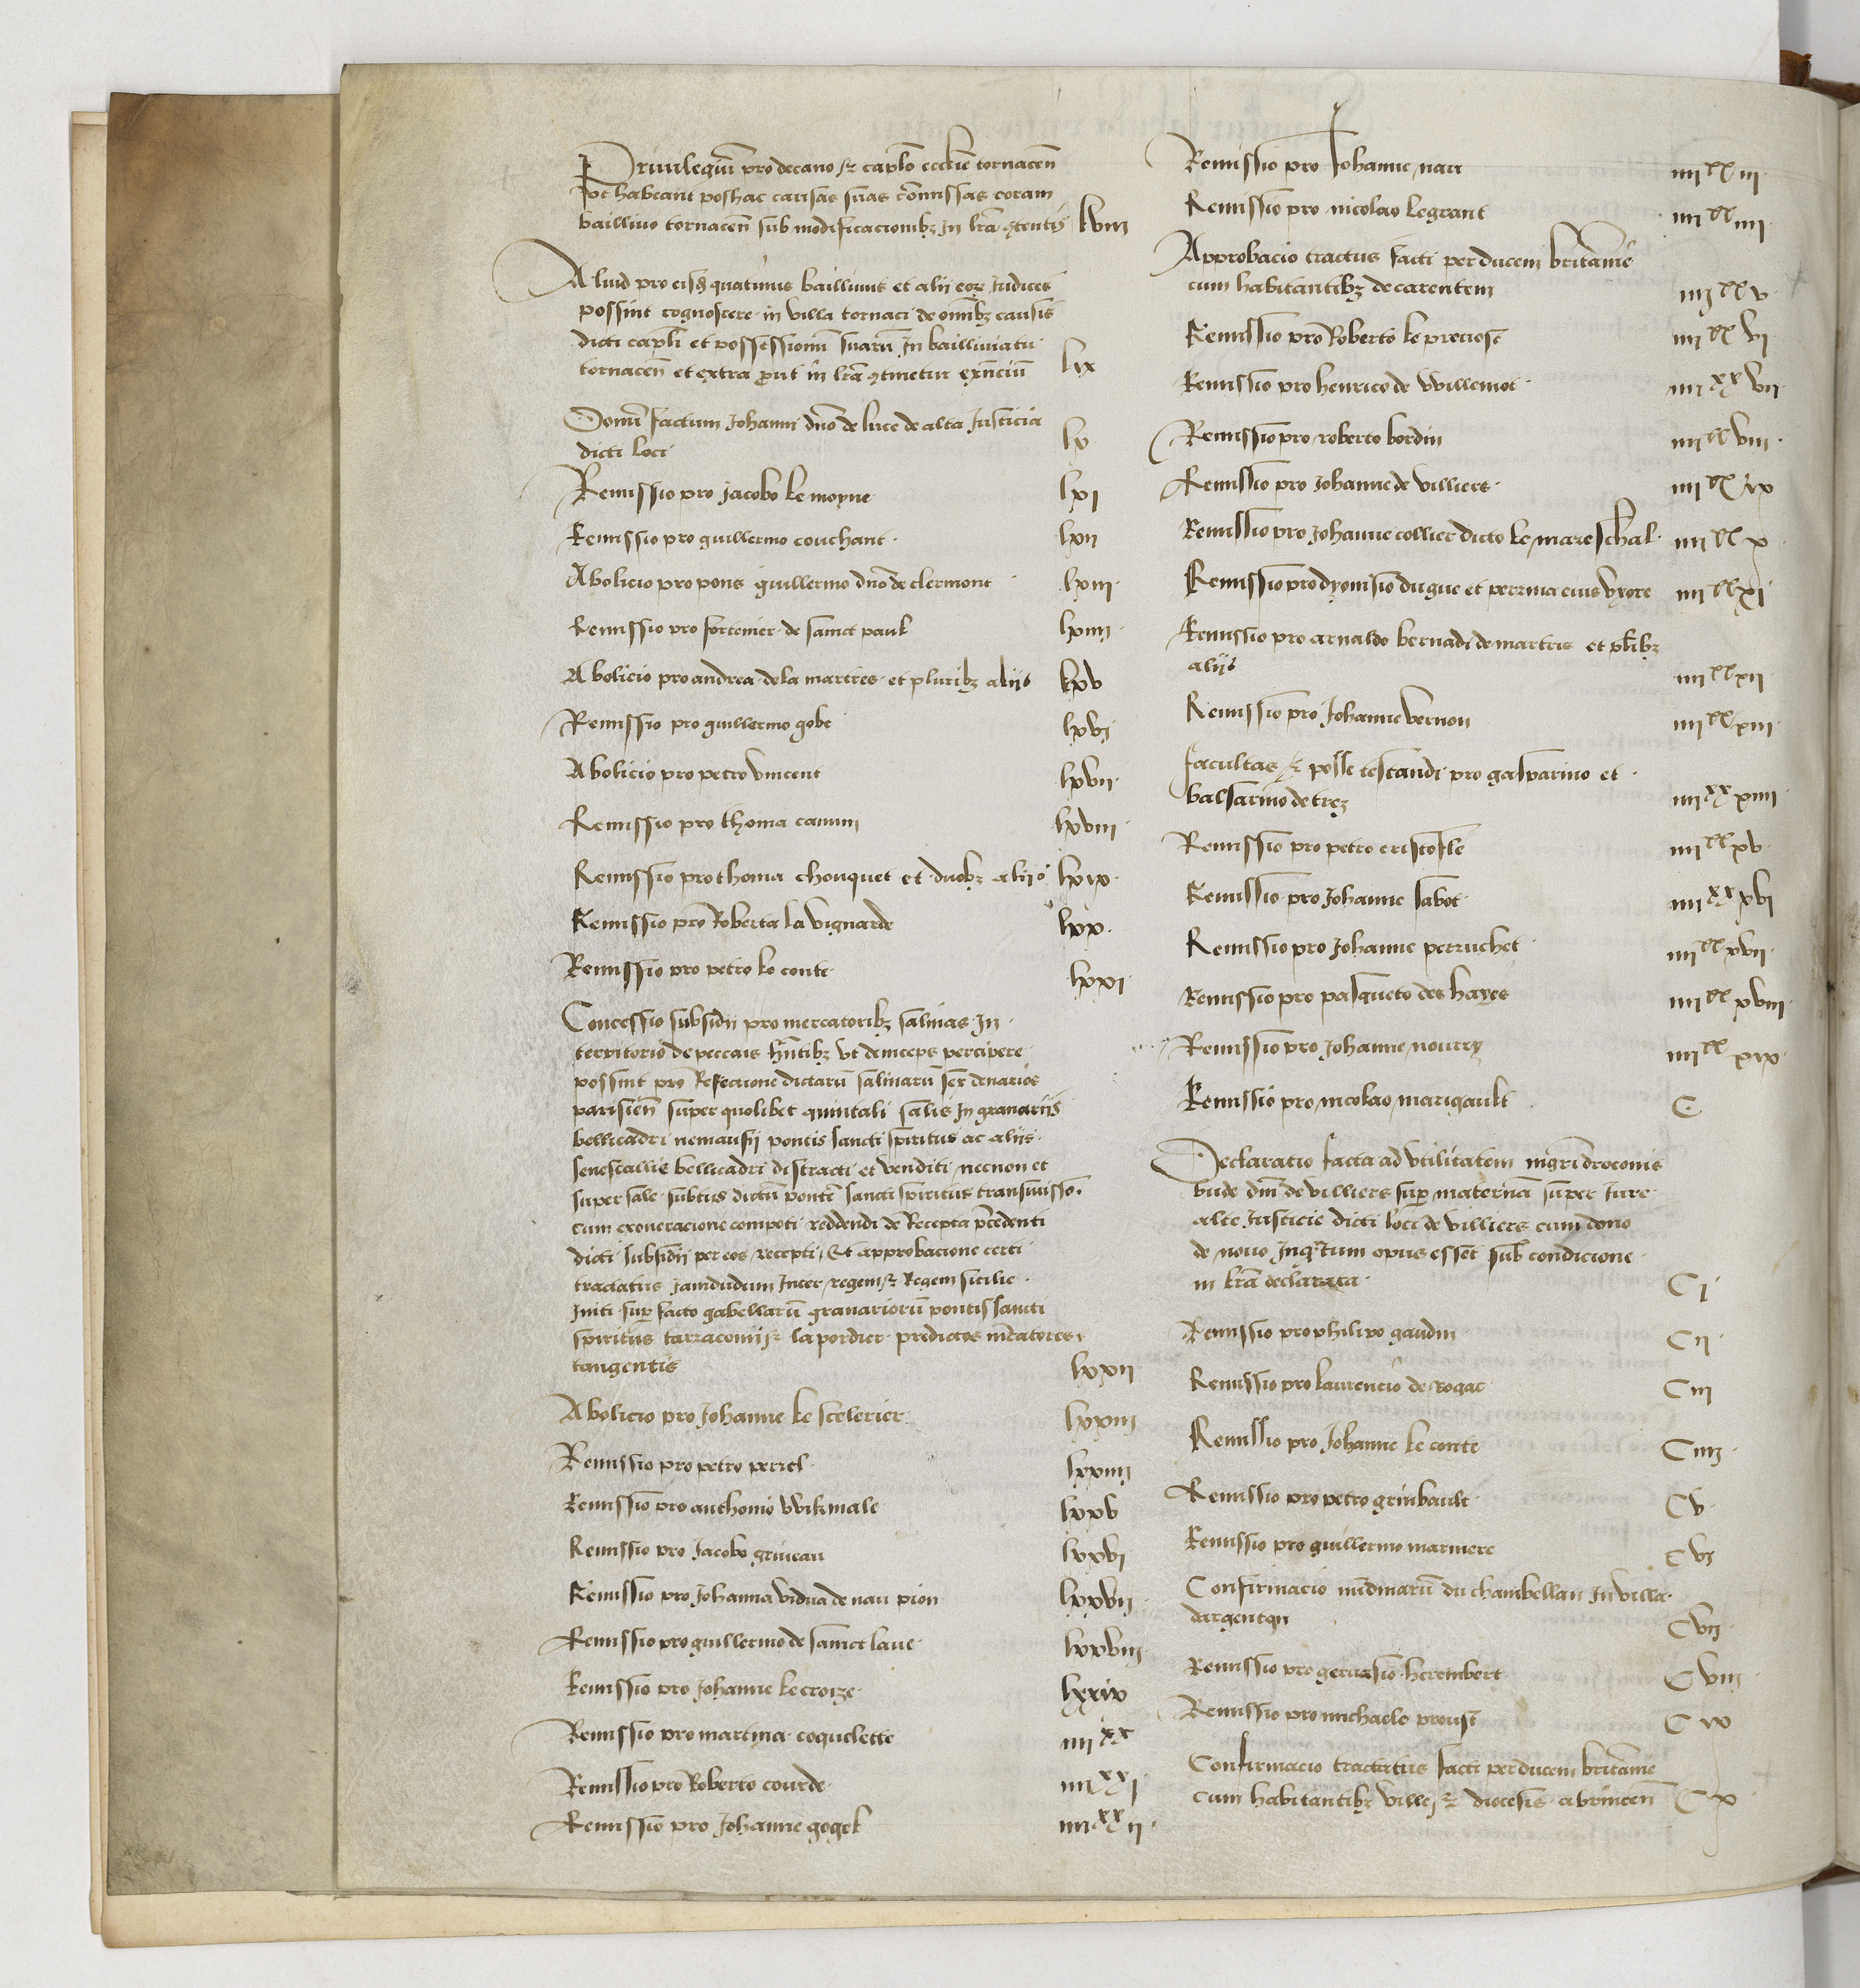 Privilegiu pro decano & caplo ecclie tornaceñ
ut habeant poshac causas suas comissas coram
baillivo tornaceñ sub modificacionibz in lra 9tentis lviii
Aliud pro eisdem quatinus baillivus et alii eorum iudices
possint cognoscere in villa tornaci de omibz causis
dicti capli et possessionu suaru in bailliviatu
tornaceñ et extra prout in lra 9tinetur lix
Donu factum Johanni dno de luce de alta Justicia
dicti loci lx
Remissio pro Jacobo le moyne lxi
Remissio pro guillermo couchant lxii
Abolicio pro pons guillermo dno de clermont lxiii
Remissio pro fortenier de sainct paul lxiiii
Abolicio pro andrea de la martres et pluribz aliis lxv
Remissio pro guillermo gobe lxvi
Abolicio pro petro vincent lxvii
Remissio pro thoma canun lxviii
Remissio pro thoma chouquet et duobz aliis lxix
Remissio pro Roberta la vignarde lxx
Remissio pro petro le conte lxxi
Concessio subsidii pro mercatoribz salinas in
territorio de peccais hntibz ut deinceps percipere
possint pro Refeccione dictaru salinaru sex denarios
parisieñ super quolibet quintali salis in granariis
bellicadri nemausii pontis sancti spiritus ac aliis
senescallie bellicadri distracti et venditi necnon et
super sale subtus dictu ponte sancti spiritus transmisso
cum exoneracione compoti reddendi de Recepta precedenti
dicti subsidii per eos recepti Et approbacione certi
tractatus jamdudum Inter regem & Regem sicilie
Initi sup facto gabellaru granarioru pontis sancti
spiritus tarraconii & lapordier predictos mcatores
tangentis lxxii
Abolicio pro Johanne le scelerier lxxiii
Remissio pro petro periel lxxiiii
Remissio pro anthonio wikmale lxxv
Remissio pro Jacobo grineau lxxvi
Remissio pro Johanna vidua de nau pion lxxvii
Remissio pro guillermo de sainct laue lxxviii
Remissio pro Johanne lecroize lxxix
Remissio pro martina coquelette iiii xx
Remissio pro Roberto courde iiii xx i
Remissio pro Johanne gogel iiii xx ii
Remissio pro Johanne nau iiii xx iii
Remissio pro nicolao legrant iiii xx iiii
Approbacio tractus facti per ducem britannie
cum habitantibz de carentem iiii xx v
Remissio pro Roberto le preciose iiii xx vi
Remissio pro henrico de willemot iiii xx vii
Remissio pro roberto bordin iiii xx viii
Remissio pro Johanne de villiers iiii xx ix
Remissio pro Johanne collier dicto le mareschal iiii xx x
Remissio pro dyonisio dugue et perrina eius uxore iiii xx xi
Remissio pro arnaldo bernadi de martris et plibz
aliis iiii xx xii
Remissio pro Johanne vernon iiii xx xiii
facultas & posse testandi pro gasparino et
balsarino de trez iiii xx xiiii
Remissio pro petro eristoile iiii xx xv
Remissio pro Johanne sabot iiii xx xvi
Remissio pro Johanne perruchet iiii xx xvii
Remissio pro pasqueto des hayes iiii xx xviii
Remissio pro Johanne nourry iiii xx xix
Remissio pro nicolao marigault C
Declaratio facta ad utilitatem mgri droconis
bude dni de villiers sup maternã super Jure
alte Justicie dicti loci de villiers cum dono
de novo Inqtum opus esset sub condicione
in lra declarata Ci
Remissio pro philipo gaudin Cii
Remissio pro laurencio de rogac Ciii
Remissio pro Johanne le conte Ciiii
Remissio pro petro grinbault Cv
Remissio pro guillermo marinere Cvi
Confirmacio nudinaru du chambellan in villa
dargenton Cvii
Remissio pro gervasio herembert Cviii
Remissio pro michaele proust Cix
Confirmacio tractatus facti per ducem britanie
cum habitantibz ville & diocesis abrinceñ Cx